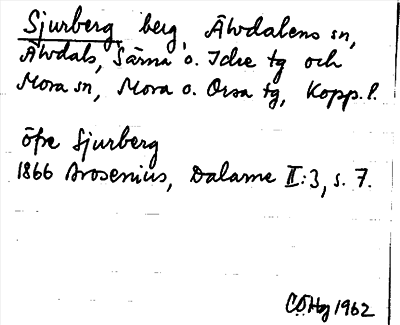 Sjurberg berg, Älvdalens sn,
Älvdals, Särna o. Idre tg och
Mora sn, Mora o. Orsa tg, Kopp. l.
öfre Sjurberg
1866 Arosenius, Dalarne II:3, s. 7.
CÖHg 1962